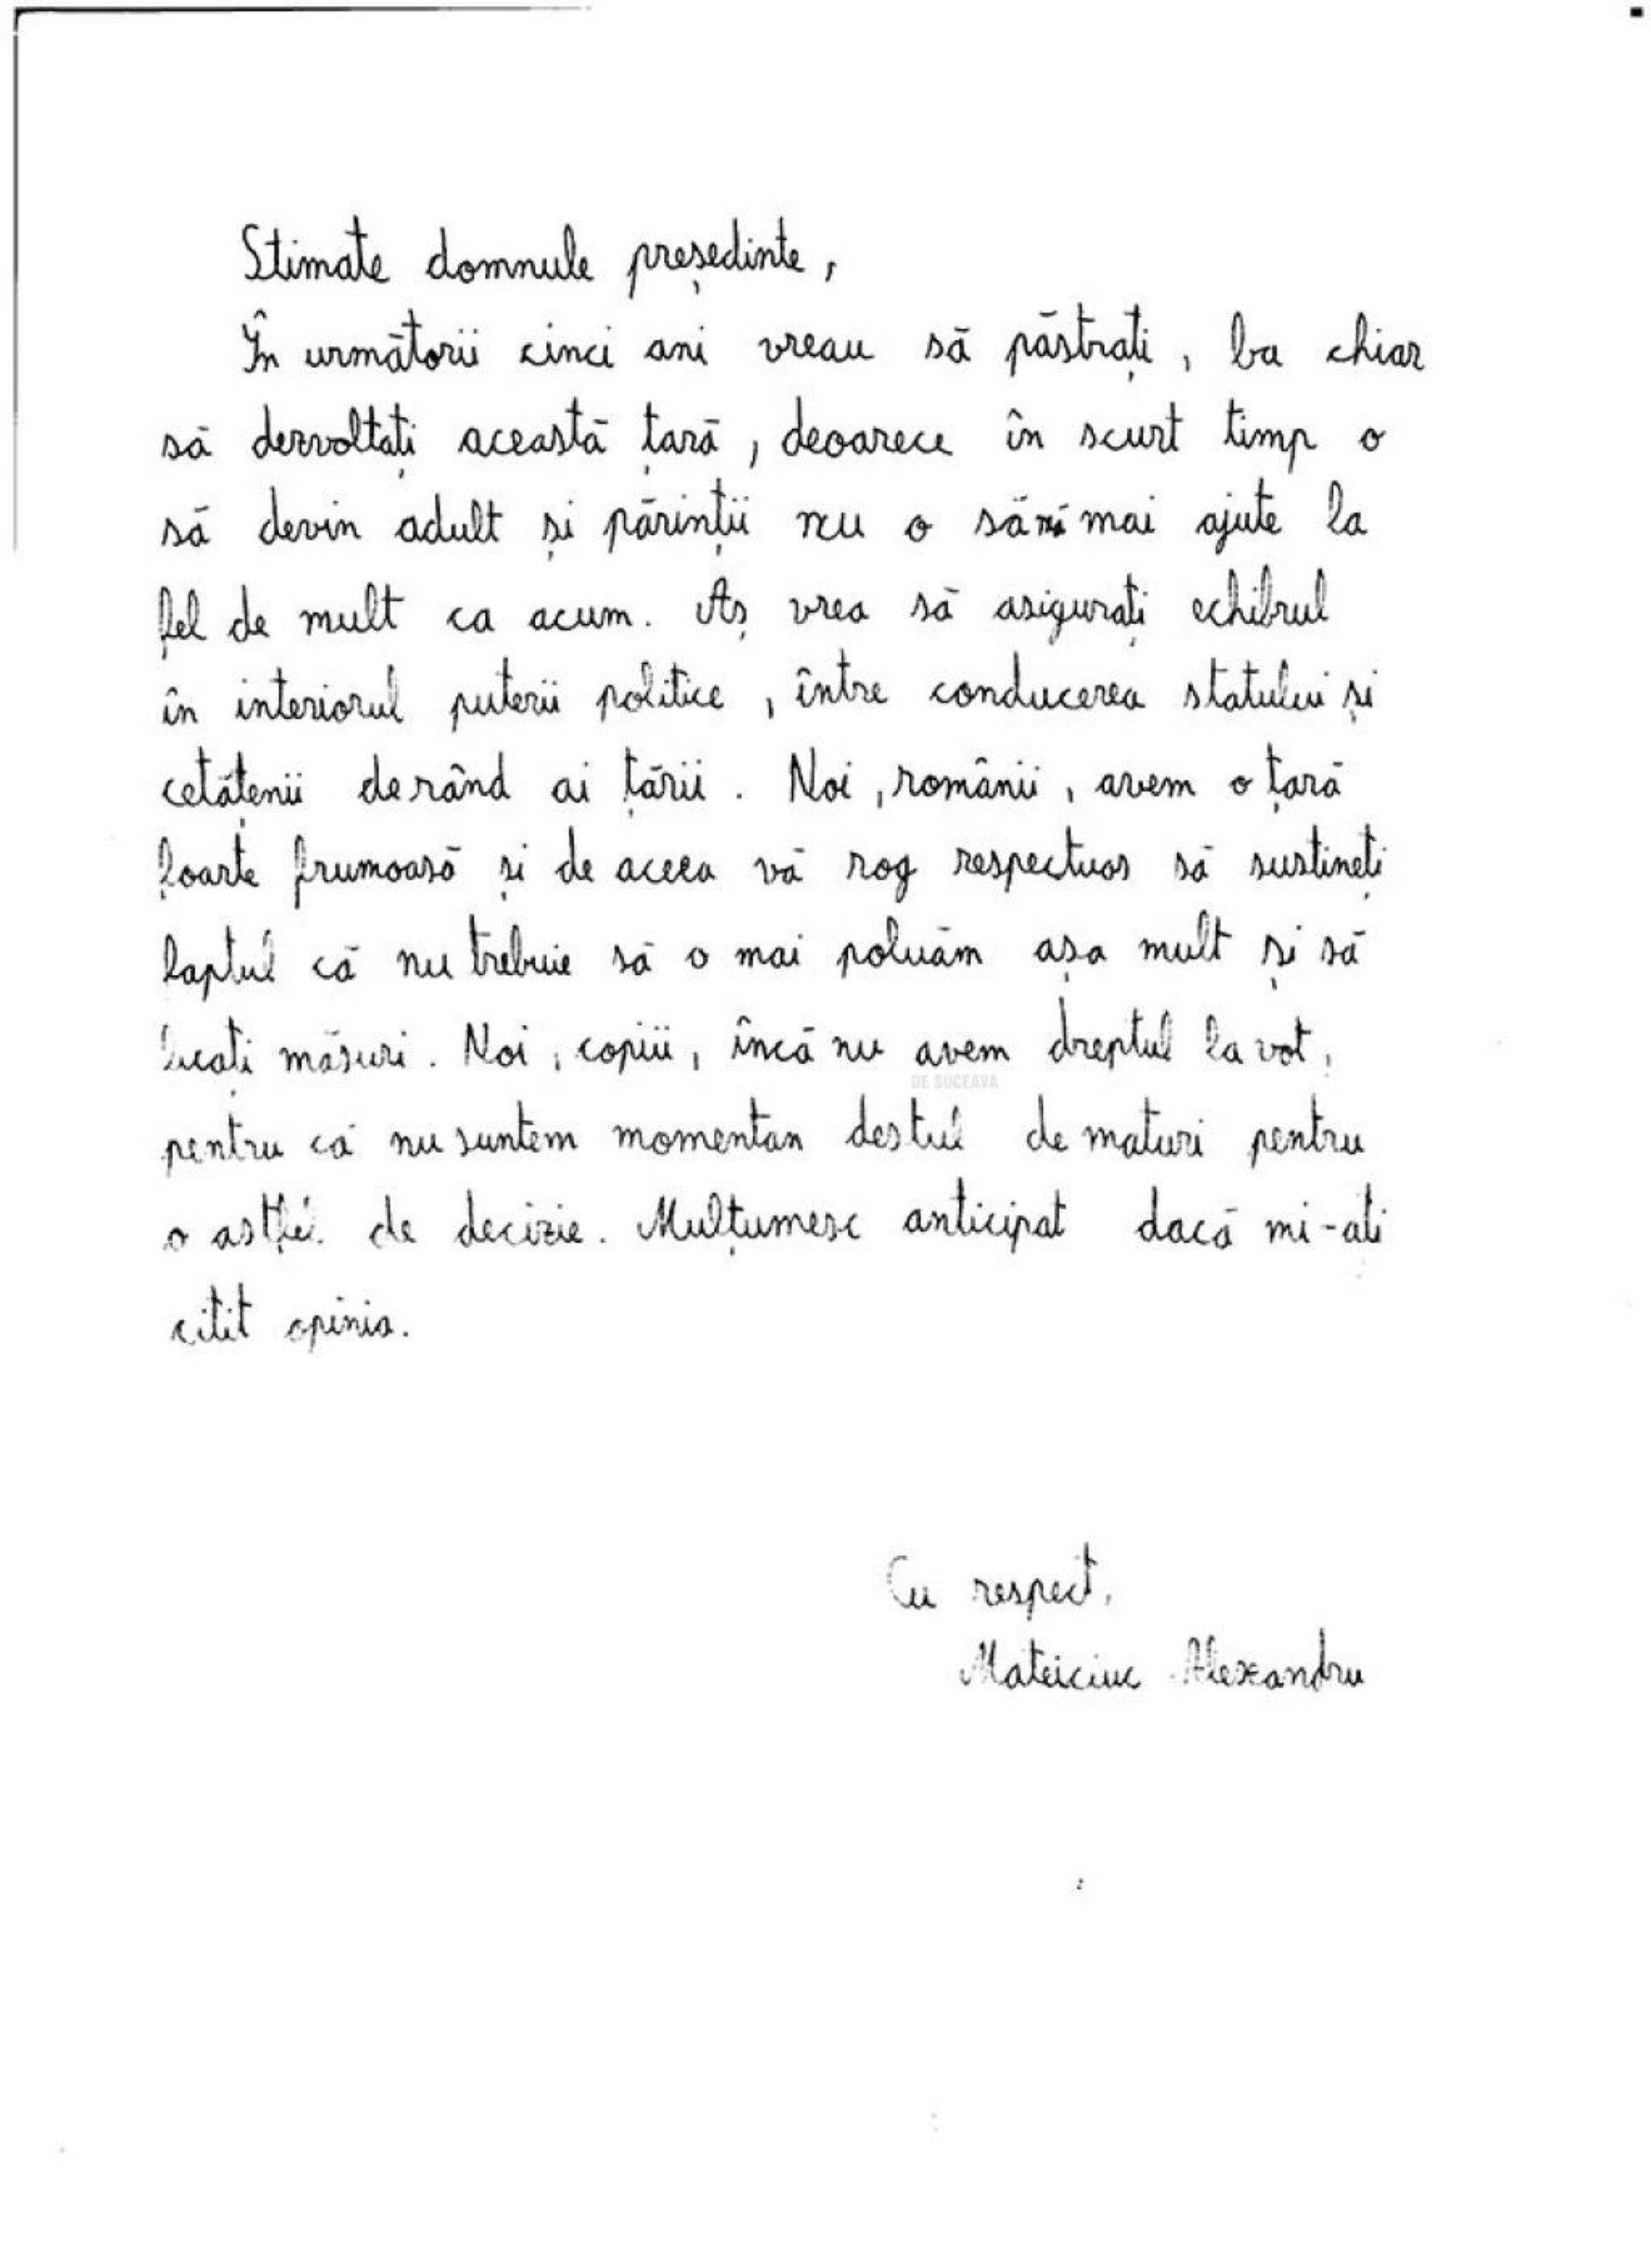 Stimate domnule președinte,
În următorii cinci ani vreau să păstrați, ba chiar
să dezvoltați această țară, deoarece în scurt timp o
să devin adult și părinții nu o să mai ajute la
fel de mult ca acum. Aș vrea să asigurați echibrul
în interiorul puterii politice, între conducerea statului și
cetățenii derând ai țării. Noi, românii, avem o țară
foarte frumoasă și de aceea vă rog respectuos să sustineți
faptul că nu trebuie să o mai poluăm așa mult și să
luați măsuri. Noi, copiii, încă nu avem dreptul la vot,
DE SUCEAVA
pentru că nu suntem momentan destul de maturi pentru
o astfel de decizie. Mulțumesc anticipat dacă mi-ați
citit opinia.
Cu respect,
Mateiciuc Alexandru